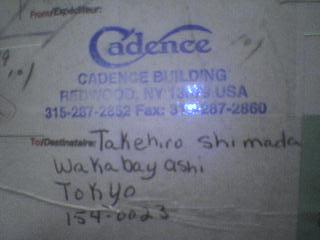 From/Expéditeur:
Cadence
CADENCE BUILDING
REDWOOD, NY USA
315-287-2852 Fax: 315-287-2860
To/Destinataire: Takehiro Shimada
Wakabayashi
Tokyo
154-0023